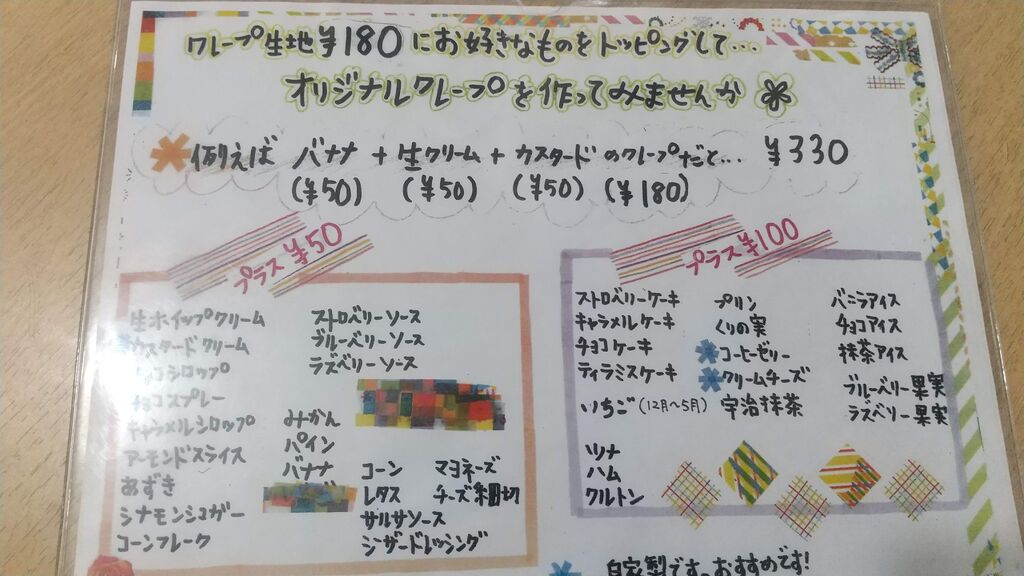 クレープ生地¥180にお好きなものをトッピングして...
オリジナルクレープを作ってみませんか
例えば バナナ + 生クリーム + カスタード のクレープだと... ¥330
(¥50) (¥50) (¥50) (¥180)
プラス¥50
生ホイップクリーム
カスタードクリーム
チョコシロップ
チョコスプレー
キャラメルシロップ
アーモンドスライス
あずき
シナモンシュガー
コーンフレーク
ストロベリーソース
ブルーベリーソース
ラズベリーソース
みかん
パイン
バナナ
コーン
レタス
サルサソース
シーザードレッシング
マヨネーズ
チーズ細切
プラス¥100
ストロベリーケーキ
キャラメルケーキ
チョコケーキ
ティラミスケーキ
いちご(12月~5月)
ツナ
ハム
クルトン
プリン
くりの実
コーヒーゼリー
クリームチーズ
宇治抹茶
バニラアイス
チョコアイス
抹茶アイス
ブルーベリー果実
ラズベリー果実
自家製です。おすすめです!